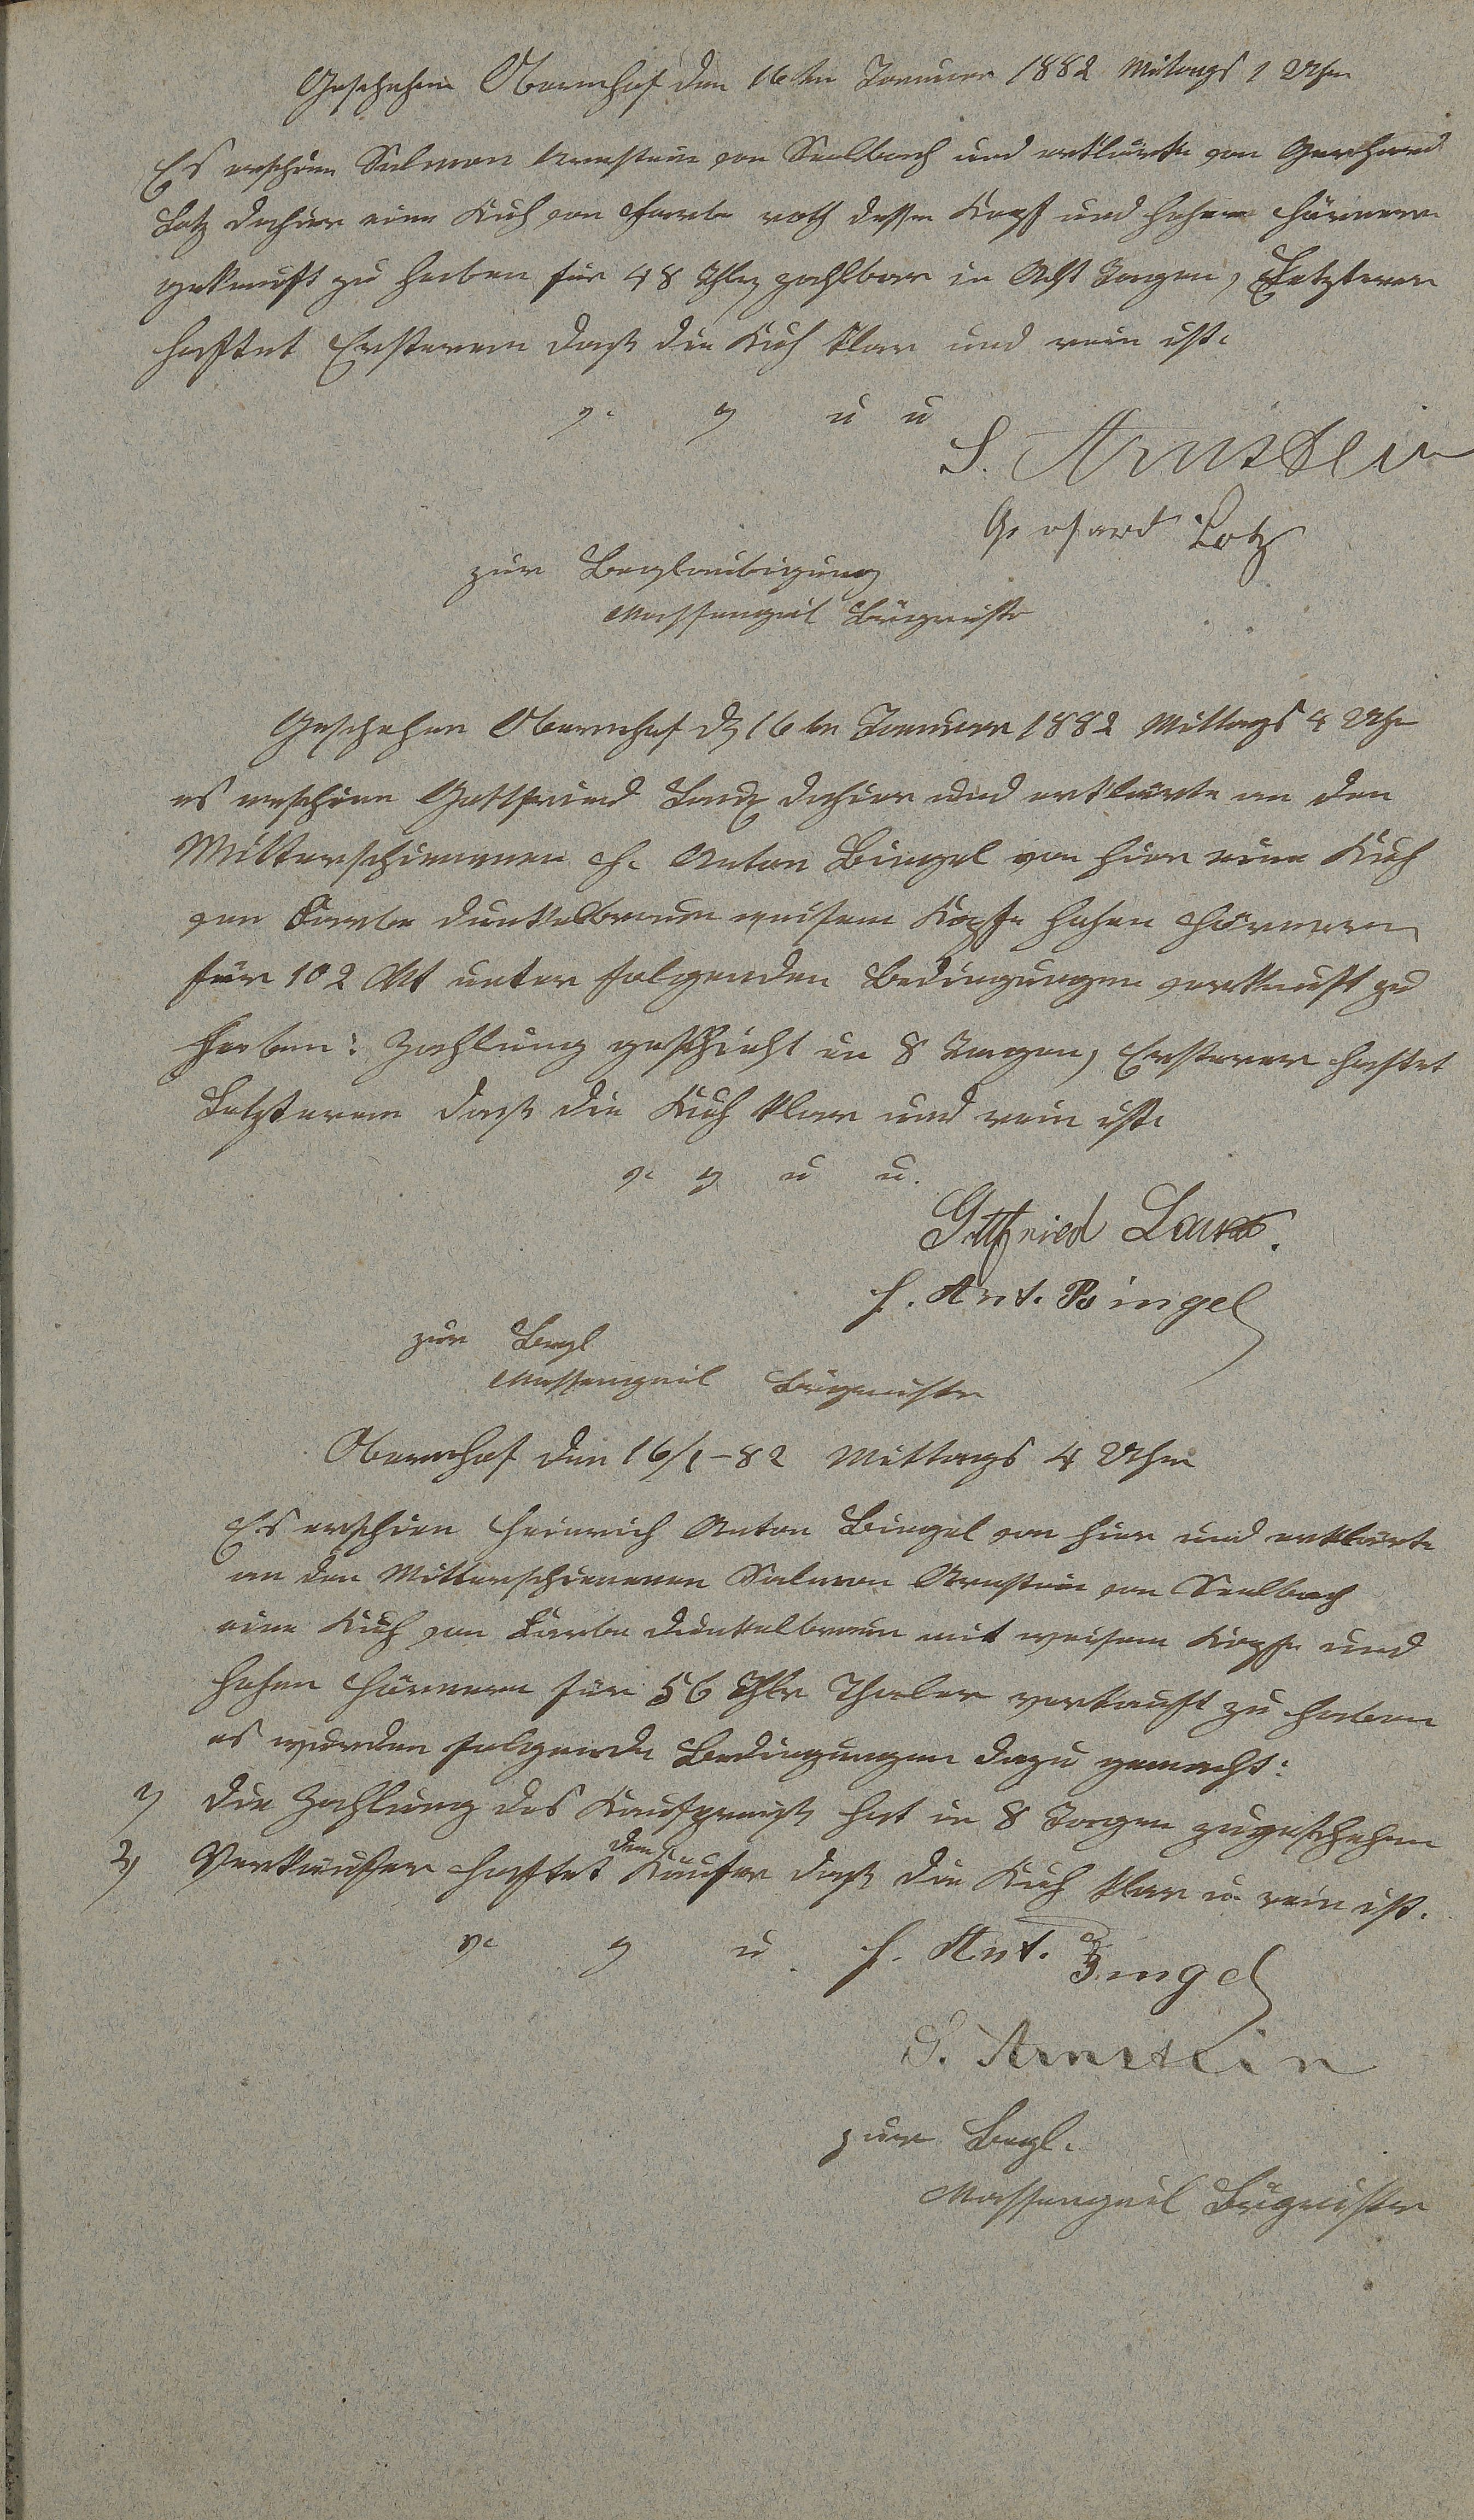 Geschehen Obernhof den 16ten Januar 1882 Mitags 1 Uhr
Es erschien Salmon Arnstein von Seelbach und erklärte von Gerhard
Lotz dahier eine Kuh von Farbe roth desse Kopf und hohen Hörnern
gekauft zu haben für 48 Thlr zahlbar in Acht Tagen, Letzterer
haftet Ersterem daß die Kuh klar und rein ist.
v. g u u
S. Arnstein
Gerhard Lotz
zur Beglaubigung
Massengeil Bürgmstr
Geschehen Obernhof d 16ten Januar 1882 Mittags 4 Uhr
es erschien Gottfried Laux dahier und erklärte an den
Mitterschienenen H. Anton Bingel von hier eine Kuh
von Farbe dunkelbraun weisem Kopfe hohen Hörnern
für 102 M unter folgenden Bedingungen verkauft zu
haben: Zahlung geschieht in 8 Tagen, Ersterer haftet
Letzterem daß die Kuh klar und rein ist.
v. g u u.
Gottfried Laux.
H. Ant. Bingel
zur Begl
Massengeil Bürgmeister
Obernhof den 16/1-82 Mittags 4 Uhr
Es erschien Heinrich Anton Bingel von hier und erklärte
an den Mitterschienenen Salmon Arnstein von Seelbach
eine Kuh von Farbe dunkelbraun mit weisem Kopfe und
hohen Hörnern für 56 Thlr Thaler verkauft zu haben
es wurden folgende Bedingungen dazu gemacht:
1) die Zahlung des Kaufpreises hat in 8 Tagen zugeschehen
2) Verkäufer haftet dem Käufer daß die Kuh klar u rein ist.
v. g u. H. Ant. Bingel
S. Arnstein
zur Begl.
Massengeil Bürgmeister